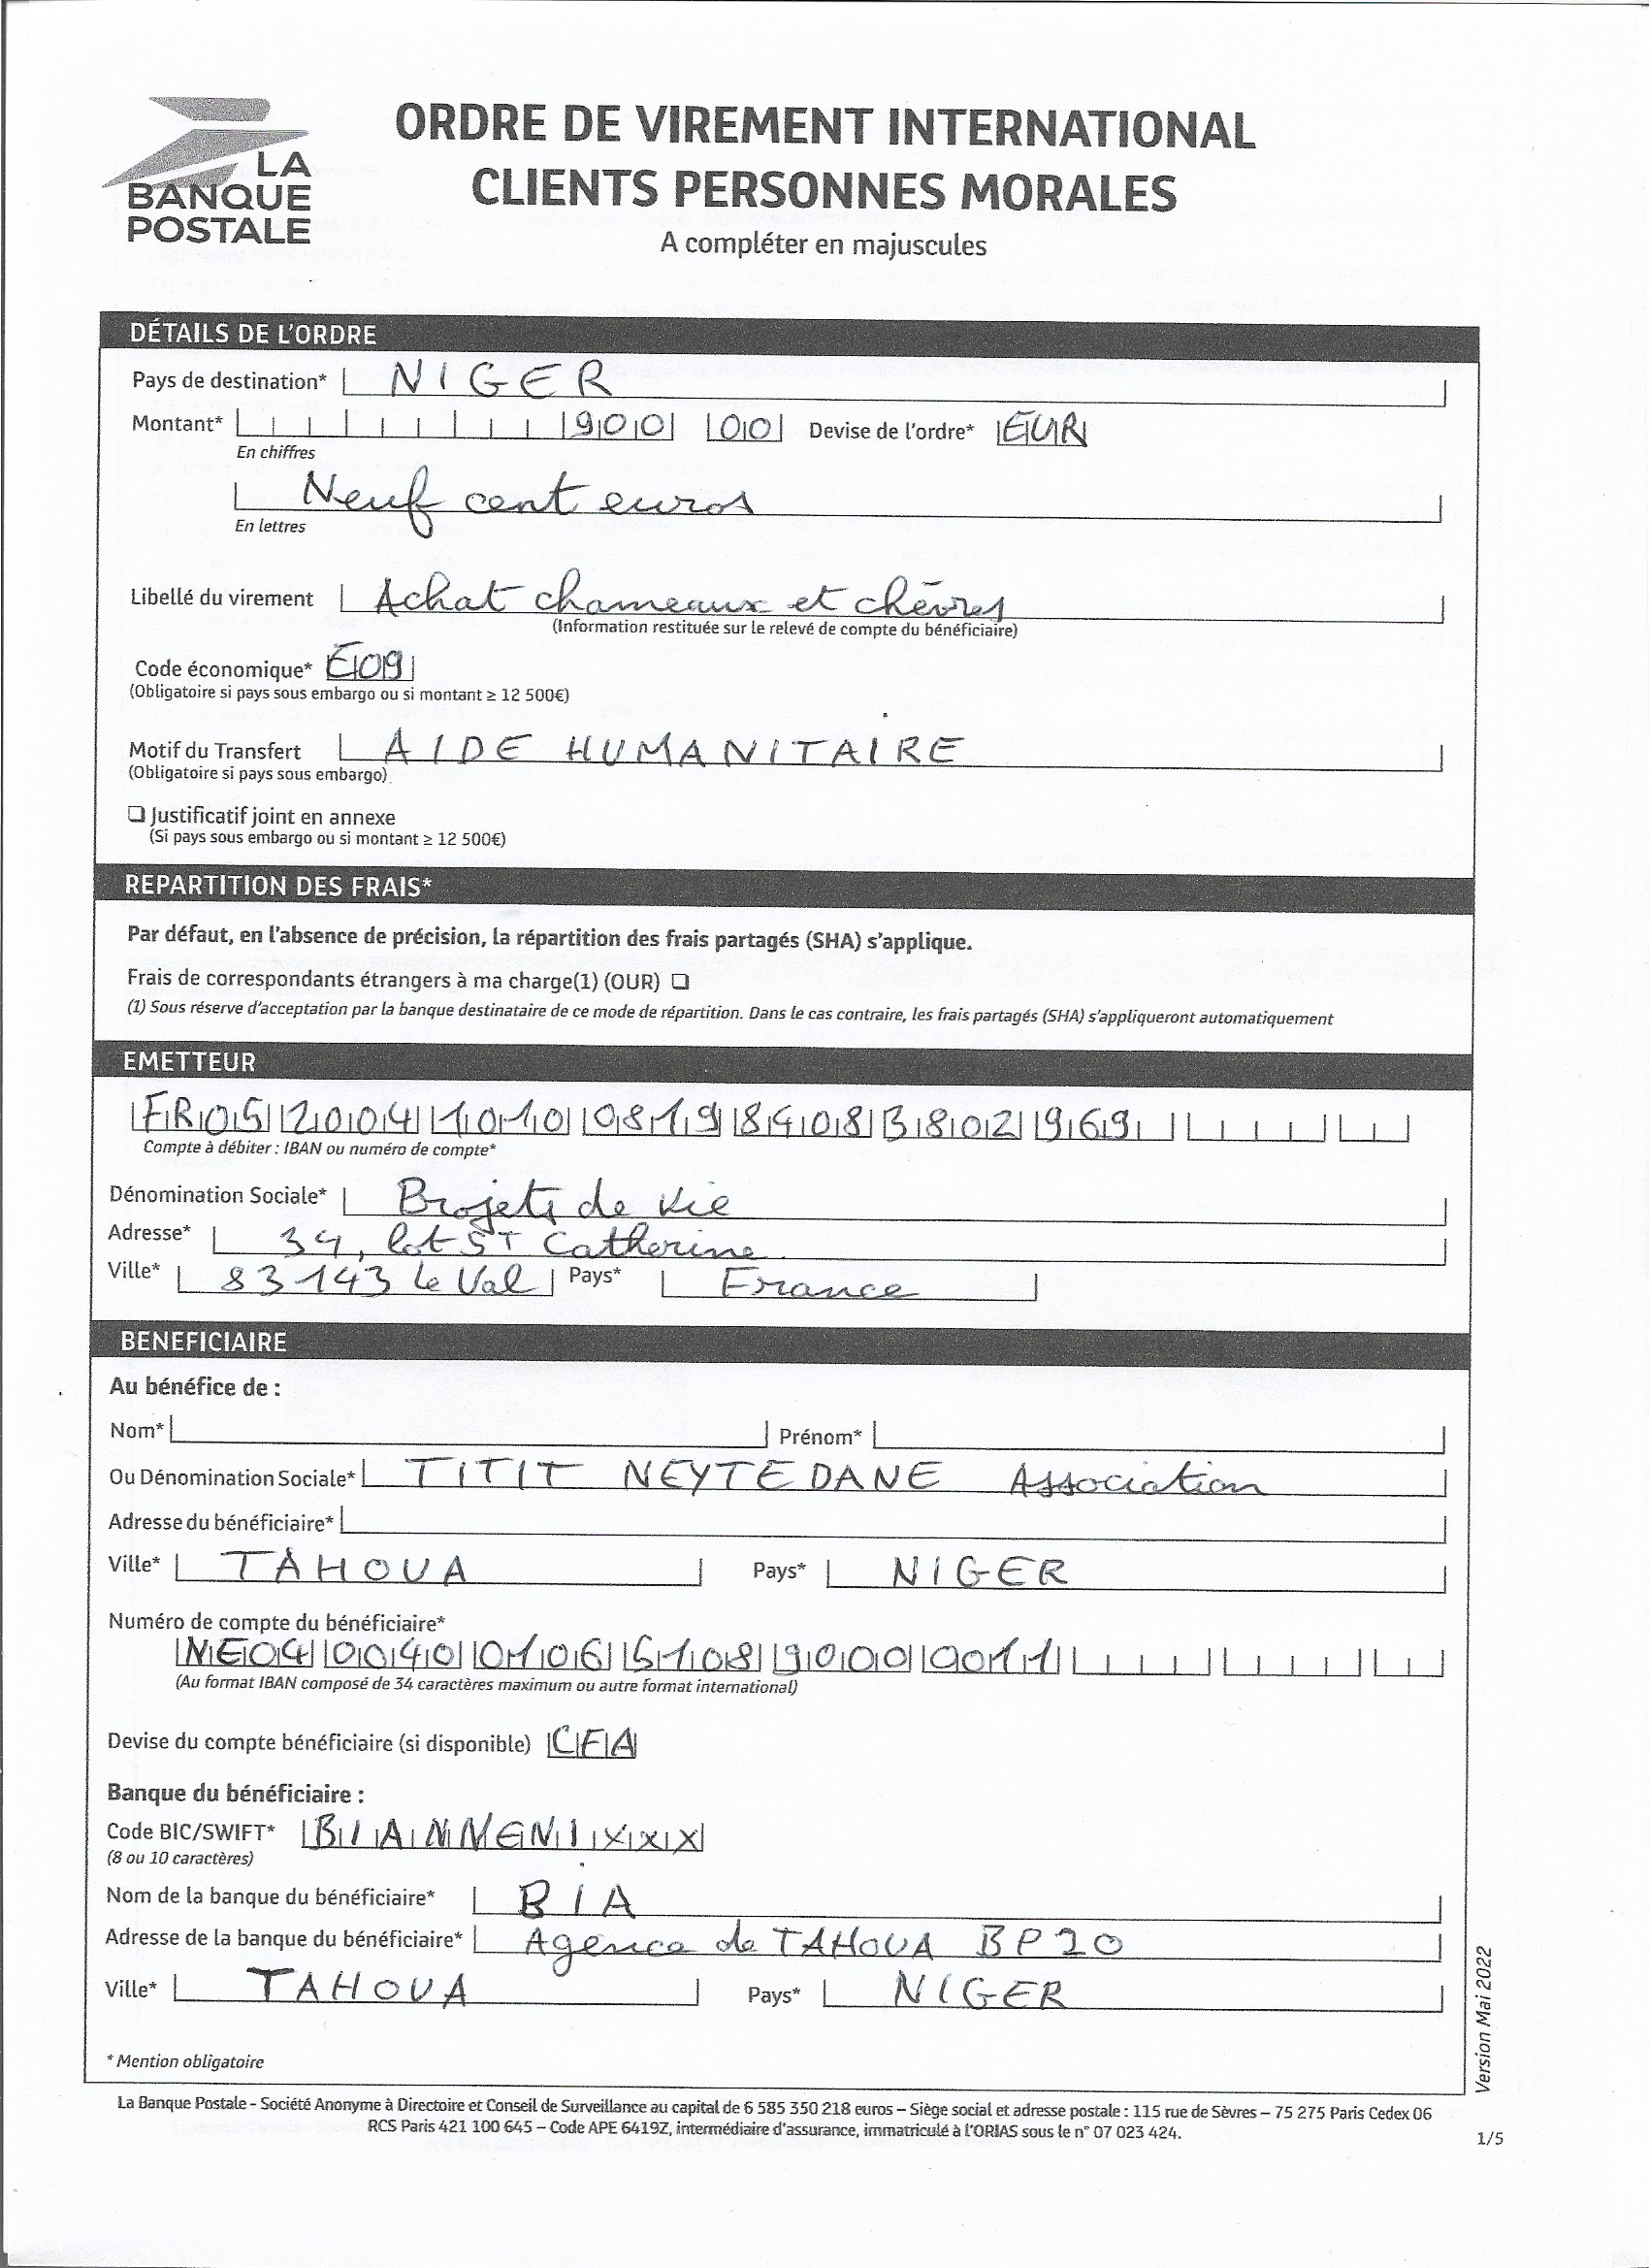 LA
BANQUE
POSTALE
ORDRE DE VIREMENT INTERNATIONAL
CLIENTS PERSONNES MORALES
A compléter en majuscules
DÉTAILS DE L'ORDRE
Pays de destination* NIGER
Montant* 900 00 Devise de l'ordre* EUR
En chiffres
Neuf cent euros
En lettres
Libellé du virement Achat chameaux et chèvres
(Information restituée sur le relevé de compte du bénéficiaire)
Code économique* E09
(Obligatoire si pays sous embargo ou si montant ≥ 12 500€)
Motif du Transfert AIDE HUMANITAIRE
(Obligatoire si pays sous embargo)
❑ Justificatif joint en annexe
(Si pays sous embargo ou si montant ≥ 12 500€)
REPARTITION DES FRAIS*
Par défaut, en l'absence de précision, la répartition des frais partagés (SHA) s'applique.
Frais de correspondants étrangers à ma charge(1) (OUR) ❑
(1) Sous réserve d'acceptation par la banque destinataire de ce mode de répartition. Dans le cas contraire, les frais partagés (SHA) s'appliqueront automatiquement
EMETTEUR
FR05 2004 1010 0819 8408 3802 969
Compte à débiter : IBAN ou numéro de compte*
Dénomination Sociale* Projets de Vie
Adresse* 34, lot ST Catherine
Ville* 83143 le Val Pays* France
BENEFICIAIRE
Au bénéfice de :
Nom* Prénom*
Ou Dénomination Sociale* TITIT NEYTEDANE Association
Adresse du bénéficiaire*
Ville* TAHOUA Pays* NIGER
Numéro de compte du bénéficiaire*
NE04 0040 0106 5108 9000 0011
(Au format IBAN composé de 34 caractères maximum ou autre format international)
Devise du compte bénéficiaire (si disponible) CFA
Banque du bénéficiaire :
Code BIC/SWIFT* BIANNENIXXX
(8 ou 10 caractères)
Nom de la banque du bénéficiaire* BIA
Adresse de la banque du bénéficiaire* Agence de TAHOUA BP20
Ville* TAHOUA Pays* NIGER
* Mention obligatoire
Version Mai 2022
La Banque Postale - Société Anonyme à Directoire et Conseil de Surveillance au capital de 6 585 350 218 euros – Siège social et adresse postale : 115 rue de Sèvres – 75 275 Paris Cedex 06
RCS Paris 421 100 645 – Code APE 6419Z, intermédiaire d'assurance, immatriculé à l'ORIAS sous le n° 07 023 424.
1/5